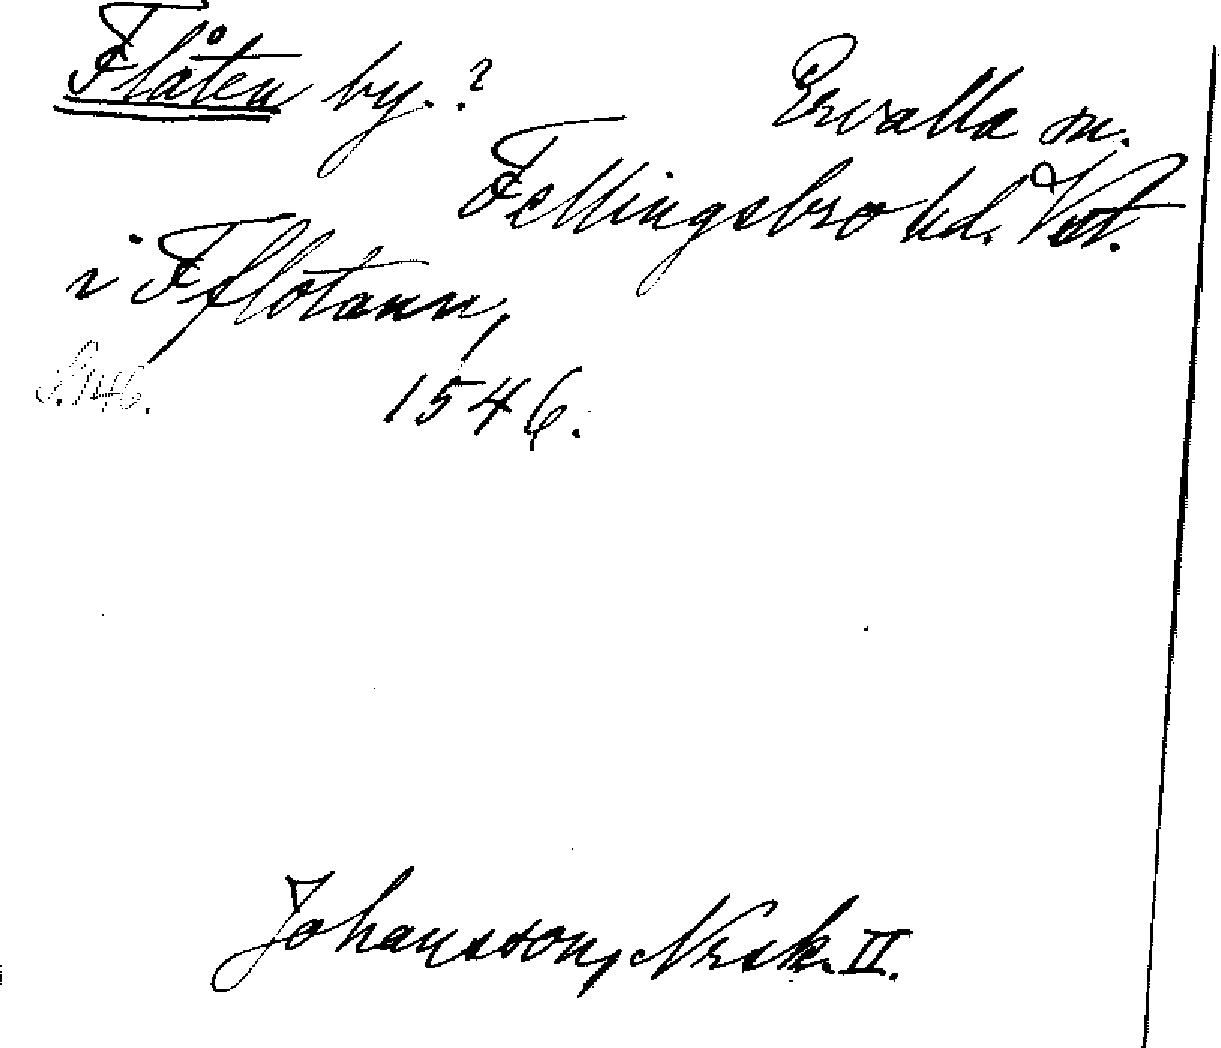 Flåten by. ?
Ervalla sn.
Fellingsbro hd. Vst.
i Fflotann,
S. 146.
1546.
Johansson, Nrsk. II.